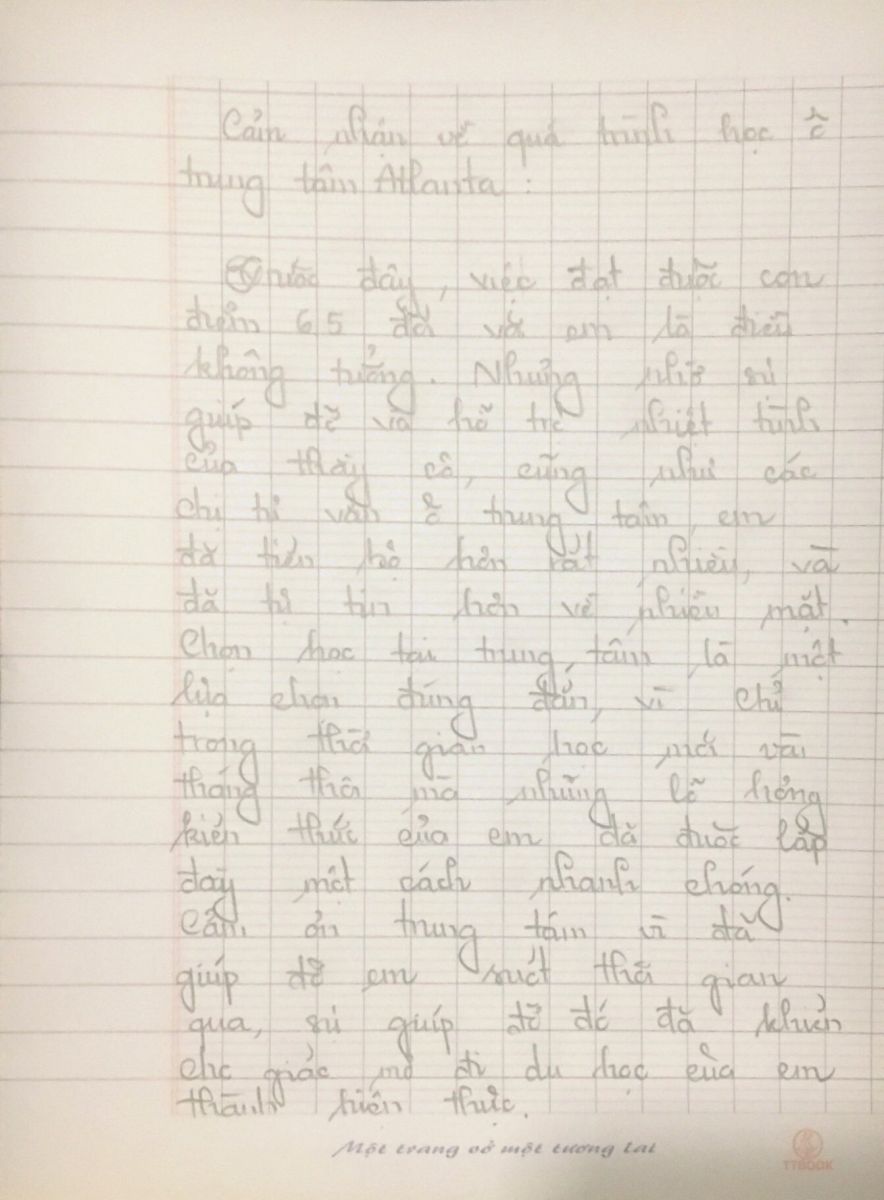 Cản nhận về quá trình học ở
trung tâm Atlanta :
Trước đây, việc đạt được con
điểm 6.5 đối với em là điều
không tưởng. Nhưng nhờ sự
giúp đỡ và hỗ trợ nhiệt tình
của thầy cô, cũng như các
chị tư vấn ở trung tâm, em
đã tiến bộ hơn rất nhiều, và
đã tự tin hơn về nhiều mặt.
Chọn học tại trung tâm là một
lựa chọn đúng đắn, vì chỉ
trong thời gian học mới vài
tháng thôi mà những lỗ hổng
kiến thức của em đã được lấp
đầy một cách nhanh chóng.
Cảm ơn trung tâm vì đã
giúp đỡ em suốt thời gian
qua, sự giúp đỡ đó đã khiến
cho giấc mơ đi du học của em
thành hiện thực.
Một trang vở một tương lai
TTBOOK